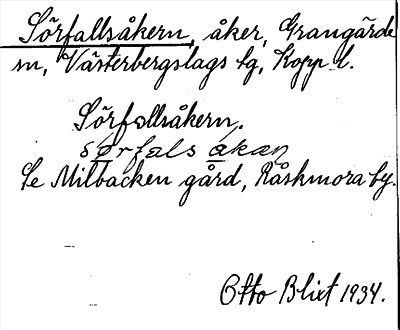 Sörfallsåkern, åker, Grangärde
sn, Västerbergslags bg, Kopp. l.
Sörfallsåkern.
sørfals åkæṇ
Se Milbacken gård, Råskmora by.
Otto Blixt 1934.